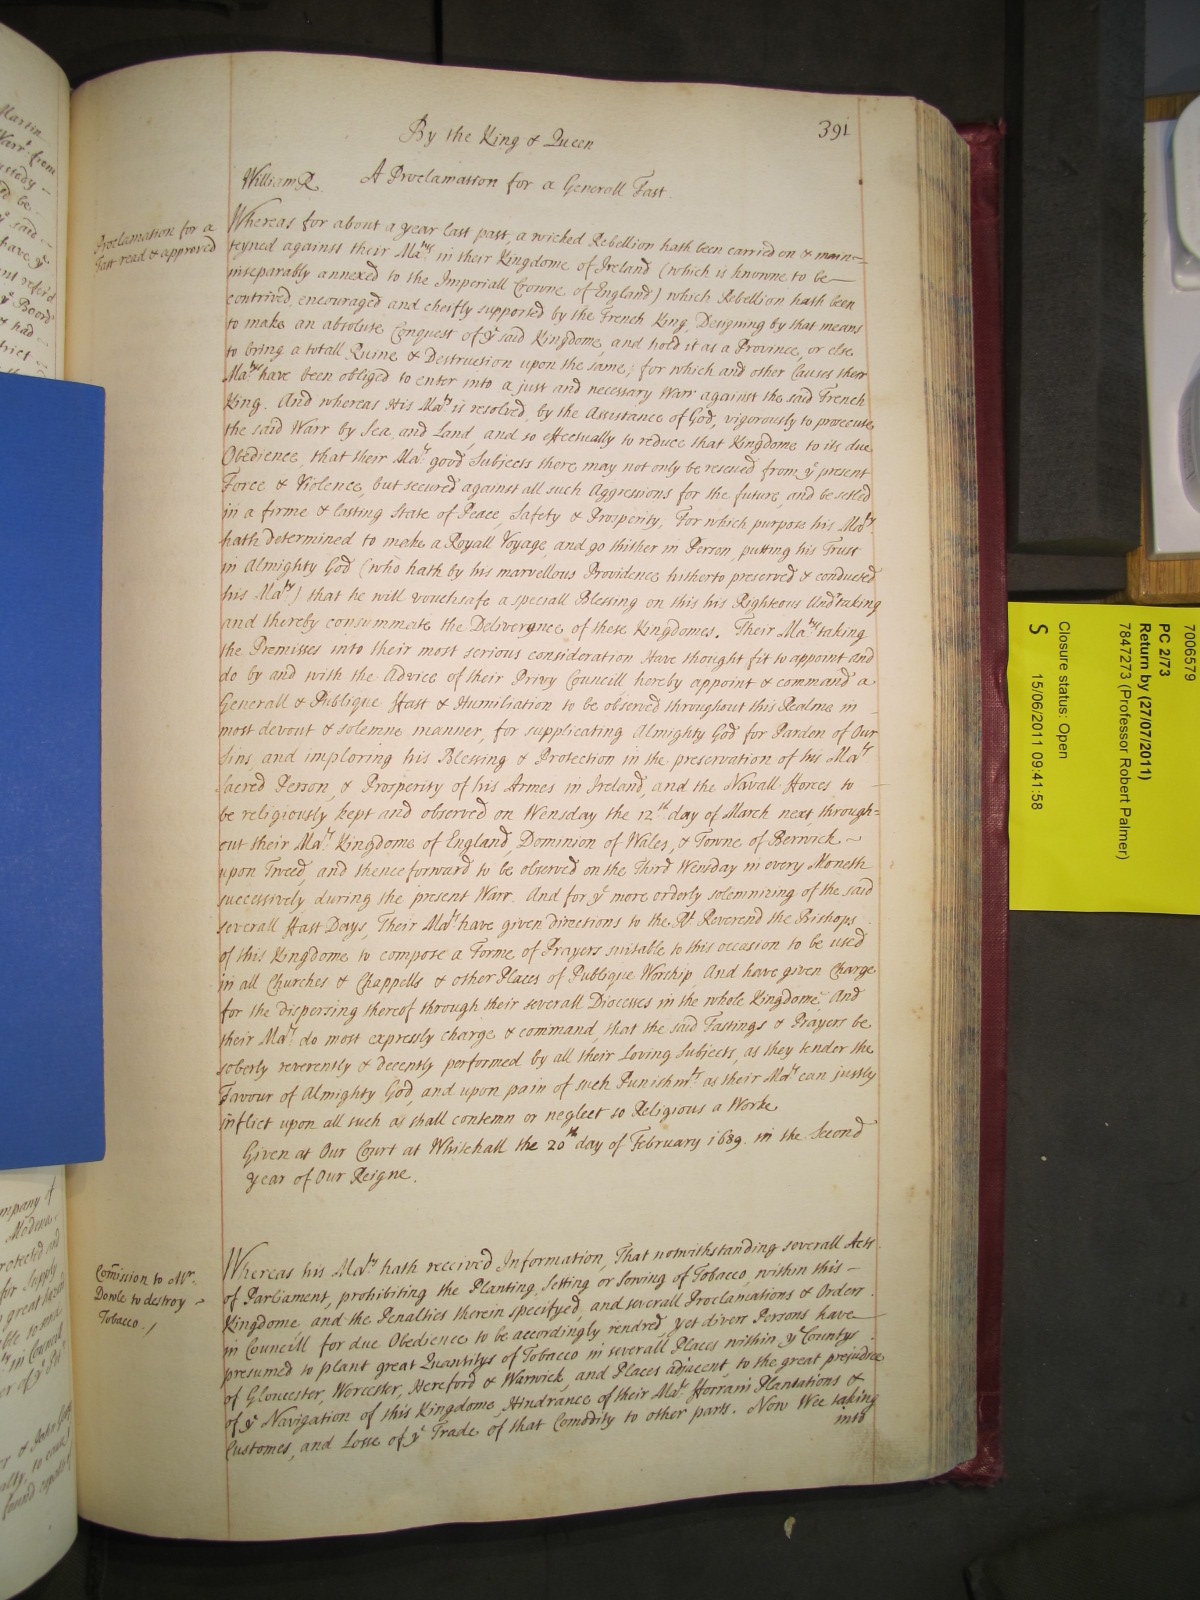 391
By the King & Queen
William R. A Proclamation for a Generall Fast
Proclamation for a
Fast read & approved
Whereas for about a year last past, a wicked Rebellion hath been carried on & main=
teyned against their Ma:tys in their Kingdome of Ireland (which is knowne to be
inseparably annexed to the Imperiall Crowne of England) which Rebellion hath been
contrived, encouraged and cheifly supported by the French King, Designing by that means
to make an absolute Conquest of ye said Kingdome, and hold it as a Province, or else
to bring a totall Ruine & Destruction upon the same; for which and other Causes their
Ma:tys have been obliged to enter into a just and necessary Warr against the said French
King. And whereas His Ma:ty is resolved, by the Assistance of God, vigorously to prosecute
the said Warr by Sea, and Land, and so effectually to reduce that Kingdome to its due
Obedience, that their Ma:ts good Subjects there may not only be rescued from ye present
Force & Violence, but secured against all such Aggressions for the future, and be setled
in a firme & lasting State of Peace, Safety & Prosperity, For which purpose his Ma:ty
hath determined to make a Royall Voyage and go thither in Person, putting his Trust
in Almighty God (who hath by his marvellous Providence hitherto preserved & conducted
his Ma:ty) that he will vouchsafe a speciall Blessing on this his Righteous Undrtaking
and thereby consummate the Deliverance of these Kingdomes. Their Ma:tys taking
the Premisses into their most serious consideration Have thought fit to appoint and
do by and with the Advice of their Privy Councill hereby appoint & command a
Generall & Publique ffast & Humiliation to be observed throughout this Realme in
most devout & solemne manner, for supplicating Almighty God for Pardon of Our
Sins, and imploring his Blessing & Protection in the preservation of his Ma:ts
Sacred Person, & Prosperity of his Armes in Ireland, and the Navall fforces to
be religiously kept and observed on Wensday the 12th day of March next through=
out their Ma:ts Kingdome of England, Dominion of Wales, & Towne of Berwick
upon Tweed, and thenceforward to be observed on the Third Wensday in every Moneth
successively during the present Warr. And for ye more orderly solemnizing of the said
severall ffast Days, Their Ma:ts have given directions to the Rt Reverend the Bishops
of this Kingdome to compose a Forme of Prayers suitable to this occasion to be used
in all Churches & Chappells & other Places of Publique Worship And have given Charge
for the dispersing thereof through their severall Diocesses in the whole Kingdome. And
their Ma:ts do most expressly charge & command, that the said Fastings & Prayers be
soberly reverently & decently performed by all their Loving Subjects, as they tender the
Favour of Almighty God, and upon pain of such Punishmts: as their Ma:ts can justly
inflict upon all such as shall contemn or neglect so Religious a Worke
Given at Our Court at Whitehall the 20th day of February 1689. in the Second
year of Our Reigne.
Comission to Mr.
Dowle to destroy
Tobacco.
Whereas his Ma:ty hath received Information, That notwithstanding severall Acts
of Parliament, prohibiting the Planting, Setting or Sowing of Tobacco, within this
Kingdome and the Penalties therein specifyed, and severall Proclamations & Orders
in Councill for due Obedience to be accordingly rendred, yet divers Persons have
presumed to plant great Quantitys of Tobacco in severall Places within ye Countys
of Gloucester, Worcester, Hereford & Warwick, and Places adjacent, to the great prejudice
of ye Navigation of this Kingdome, Hindrance of their Ma:ts Forrain Plantations &
Customes, and Losse of ye Trade of that Comodity to other parts. Now Wee taking
into
7006579
PC 2/73
Return by (27/07/2011)
7847273 (Professor Robert Palmer)
Closure status: Open
15/06/2011 09:41:58
S